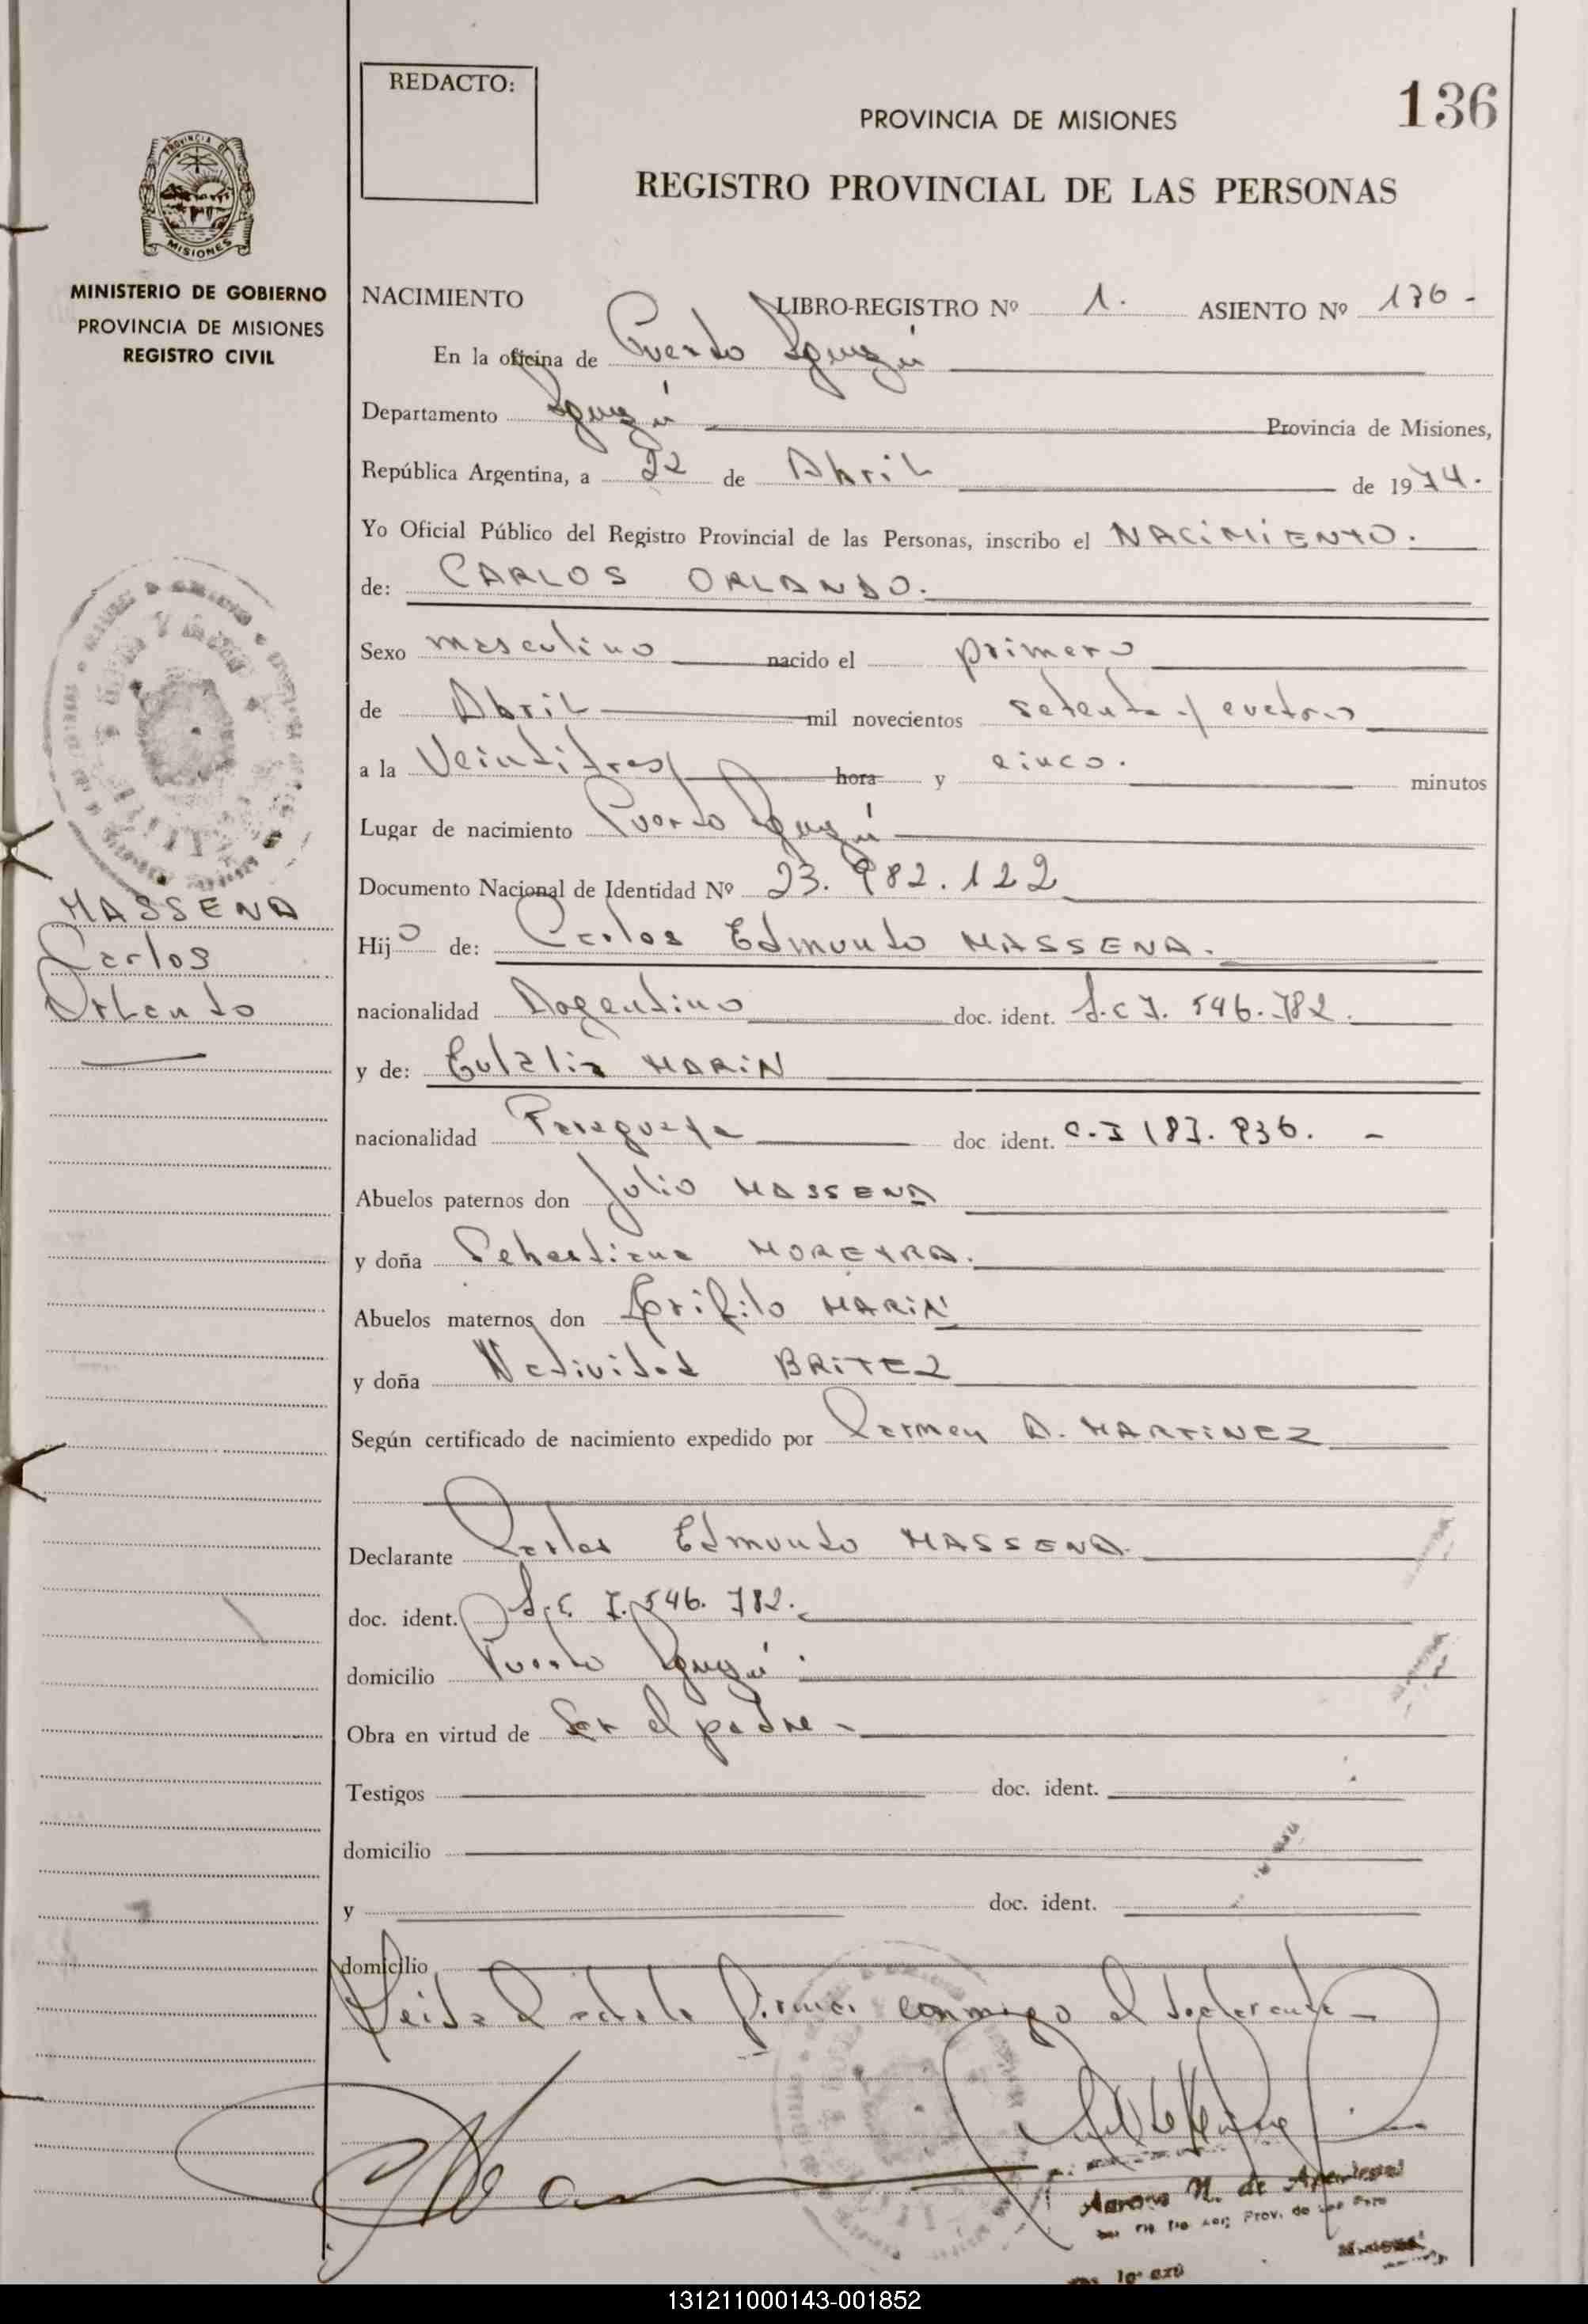 REDACTO:
PROVINCIA DE MISIONES
136
REGISTRO PROVINCIAL DE LAS PERSONAS
PROVINCIA DE
MISIONES
MINISTERIO DE GOBIERNO
PROVINCIA DE MISIONES
REGISTRO CIVIL
NACIMIENTO LIBRO-REGISTRO Nº 1. ASIENTO Nº 176 -
En la oficina de Puerto Iguazú
Departamento Iguazú Provincia de Misiones,
República Argentina, a 22 de Abril de 1974.
Yo Oficial Público del Registro Provincial de las Personas, inscribo el NACIMIENTO.
de: CARLOS ORLANDO.
Sexo masculino nacido el primero
de Abril mil novecientos setenta y cuatro
a la Veintitres hora y cinco. minutos
Lugar de nacimiento Puerto Iguazú
Documento Nacional de Identidad Nº 23. 982. 122
MASSENA
Carlos
Orlando
Hijo de: Carlos Edmundo MASSENA.
nacionalidad Argentino doc. ident. L.E 7. 546. 782.
y de: Eulalia MARIN
nacionalidad Paraguaya doc ident. C.I 187. 936. -
Abuelos paternos don Julio MASSENA
y doña Sebastiana MOREYRA.
Abuelos maternos don MARIN
y doña Natividad BRITEZ
Según certificado de nacimiento expedido por Carmen A. MARTINEZ
Declarante Carlos Edmundo MASSENA.
doc. ident. L.E. 7. 546. 782.
domicilio Puerto Iguazú.
Obra en virtud de Ser el padre -
Testigos doc. ident.
domicilio
y doc. ident.
domicilio
Leida el acta la firma conmigo el declarante -
N. de
131211000143-001852